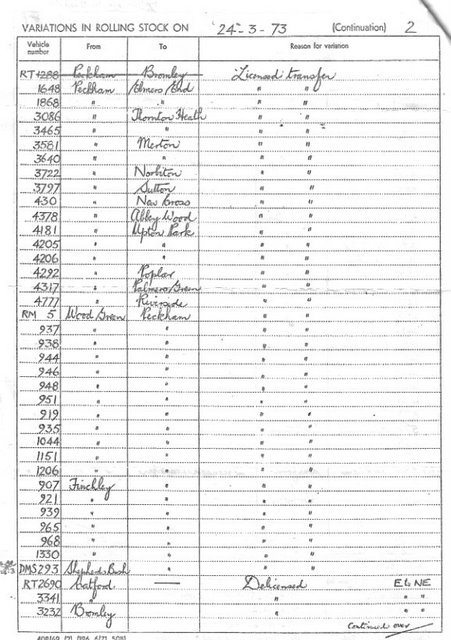 VARIATIONS IN ROLLING STOCK ON 24-3-73 (Continuation) 2
Vehicle number From To Reason for variation
RT4288 Peckham Bromley Licensed transfer
1648 Peckham Elmers End " "
1868 " " " "
3086 " Thornton Heath " "
3465 " " " "
3581 " Merton " "
3640 " " " "
3722 " Norbiton " "
3797 " Sutton " "
430 " New Cross " "
4378 " Abbey Wood " "
4181 " Upton Park " "
4205 " " " "
4206 " " " "
4292 " Poplar " "
4317 " Palmers Green " "
4777 " Riverside " "
RM 5 Wood Green Peckham " "
937 " " " "
938 " " " "
944 " " " "
946 " " " "
948 " " " "
951 " " " "
919 " " " "
935 " " " "
1044 " " " "
1151 " " " "
1206 " " " "
907 Finchley " " "
921 " " " "
939 " " " "
965 " " " "
968 " " " "
1330 " " " "
DMS293 Shepherds Bush " " "
RT2690 Catford — Delicensed E to NE
3341 " " " "
3232 Bromley " " "
Continued over